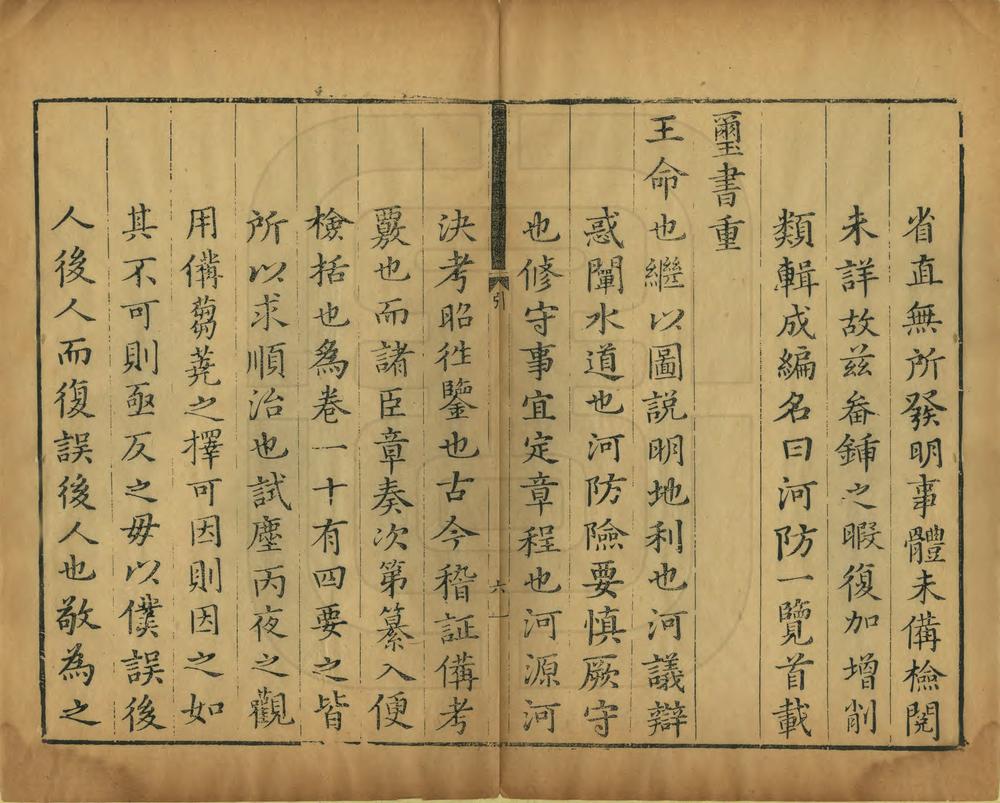 省直無所發明事體未備檢閱
未詳故兹畚鍤之暇復加增削
類輯成編名曰河防一覽首載
璽書重
王命也繼以圖説明地利也河議辯
惑闡水道也河防險要慎厥守
也修守事宜定章程也河源河
引
六
決考昭徃鑒也古今稽証備考
覈也而諸臣章奏次第纂入便
檢括也為卷一十有四要之皆
所以求順治也試塵丙夜之觀
用備蒭蕘之擇可因則因之如
其不可則亟反之毋以僕誤後
人後人而復誤後人也敬為之